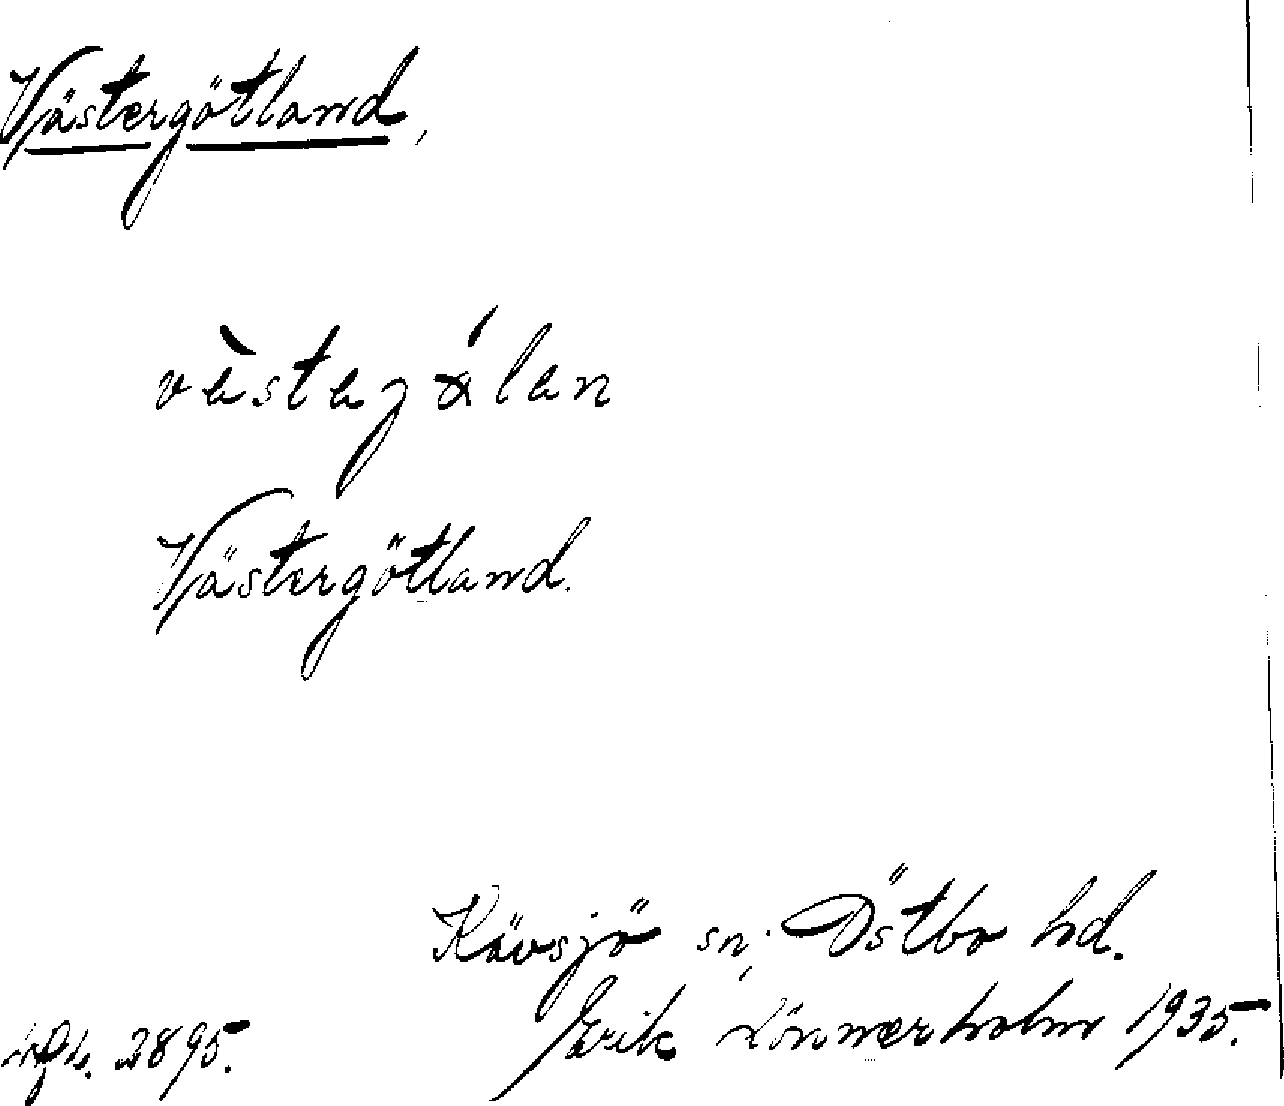 Västergötland,
västegálan
Västergötland.
Kävsjö sn; Östbo hd.
Erik Lönnerholm 1935.
2895.